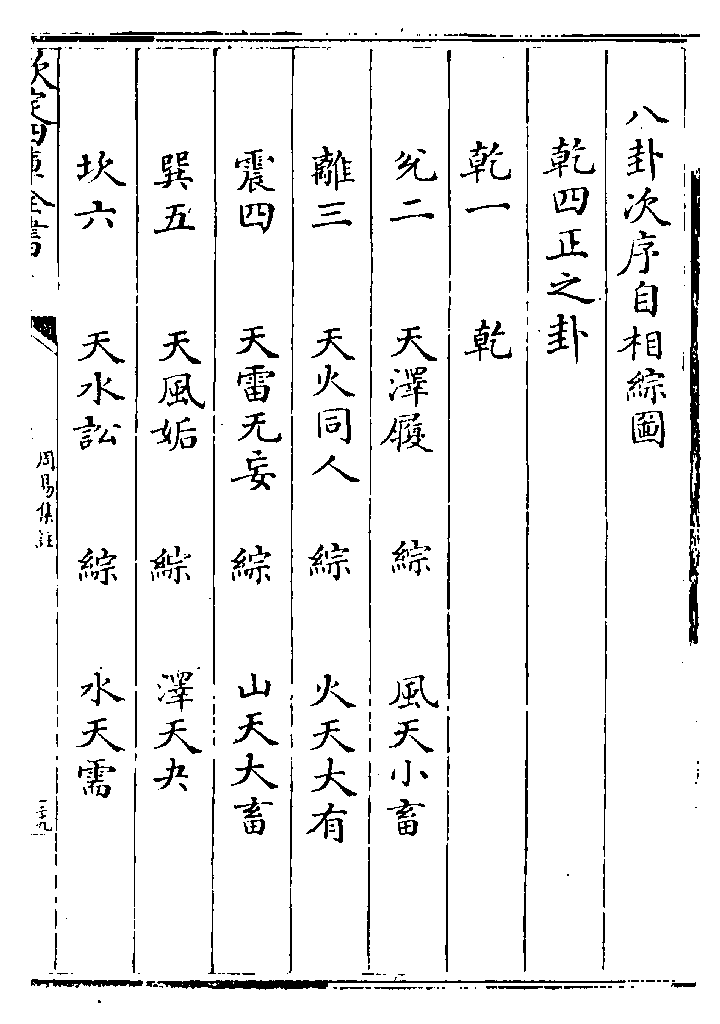 八卦次序自相綜圖
乾四正之卦
乾一　乾
兌二　天澤履　綜　風天小畜
離三　天火同人　綜　火天大有
震四　天雷无妄　綜　山天大畜
巽五　天風姤　綜　澤天夬
坎六　天水訟　綜　水天需
欽定四庫全書
周易集註